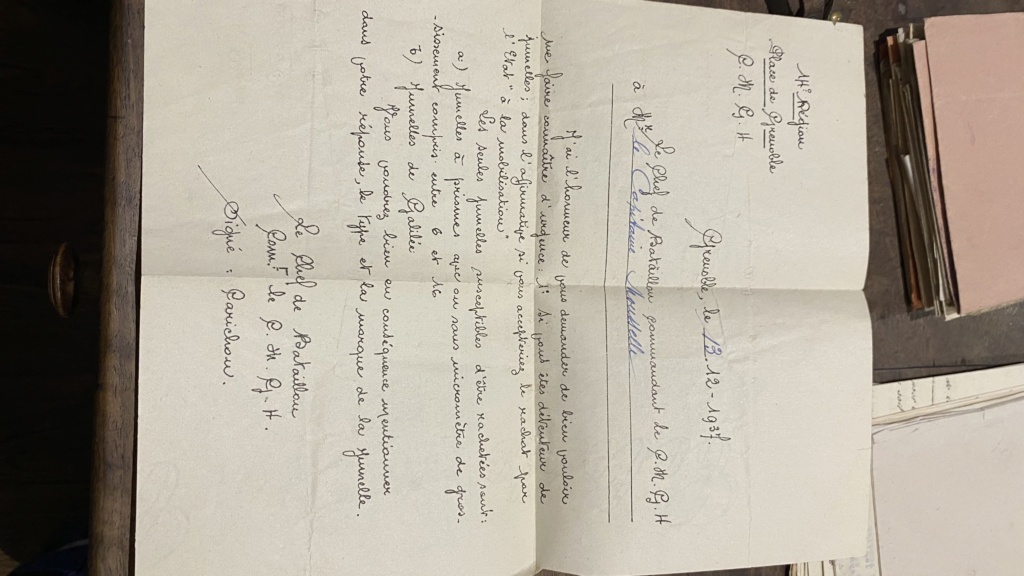 14e Région
Place de Grenoble
C. M. G. H
Grenoble, le 13.12-1937.
Le Chef de Bataillon commandant le C. M. G. H
à Mr le Capitaine
J'ai l'honneur de vous demander de bien vouloir
me faire connaître d'urgence : 1° Si vous êtes détenteur de
jumelles ; dans l'affirmative si vous accepteriez le rachat par
l'Etat " à la mobilisation "
Les seules jumelles susceptibles d'être rachetées sont :
a) Jumelles à prismes avec ou sans micromètre de gros-
-sissement compris entre 6 et 16
b) Jumelles de Galilée
Vous voudrez bien en conséquence mentionner
dans votre réponse, le type et la marque de la jumelle.
Le Chef de Bataillon
Comt le C. M. G. H.
Signé :